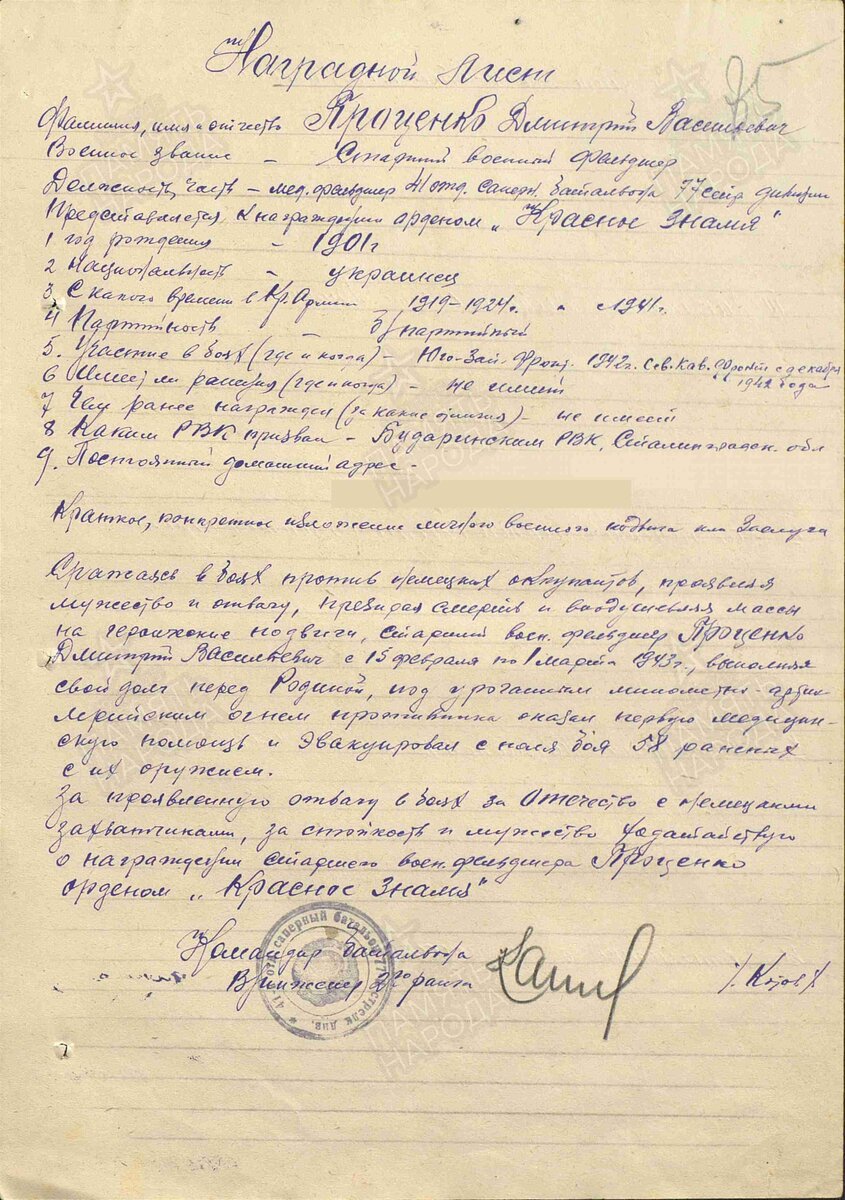 Наградной лист
85
Фамилия, имя и отчество Проценко Дмитрий Васильевич
Военное звание – Старший военный фельдшер
Должность, часть – мед. фельдшер 41 отд. саперн. батальона 77 стр дивизии
Представляется к награждению орденом „Красное Знамя"
1 год рождения – 1901 г
2 национальность – украинец
3 С какого времени в Кр. Армии 1919–1924 г. и с 1941 г.
4 Партийность – б/партийный
5. Участие в боях (где и когда) – Юго-Зап. Фронт. 1942 г. Сев. Кав. Фронт с декабря
1942 года
6 Имеет ли ранения (где и когда) – не имеет
7 Чем ранее награжден (за какие отличия) – не имеет
8 Каким РВК призван – Бударинским РВК, Сталинградск. обл
9. Постоянный домашний адрес –
Краткое, конкретное изложение личного военного подвига или заслуга
Сражаясь в боях против немецких оккупантов, проявляя
мужество и отвагу, презирая смерть и воодушевляя массы
на героические подвиги, старший воен. фельдшер Проценко
Дмитрий Васильевич с 15 февраля по 1 марта 1943 г., выполняя
свой долг перед Родиной, под ураганным минометно-артил-
лерийским огнем противника оказал первую медицин-
скую помощь и эвакуировал с поля боя 58 раненых
с их оружием.
За проявленную отвагу в боях за Отечество с немецкими
захватчиками, за стойкость и мужество ходатайствую
о награждении старшего воен. фельдшера Проценко
орденом „Красное Знамя"
Командир батальона
В/инженер 2го ранга
41 отд. саперный батальон 77 стрелк. див.
ПАМЯТЬ НАРОДА